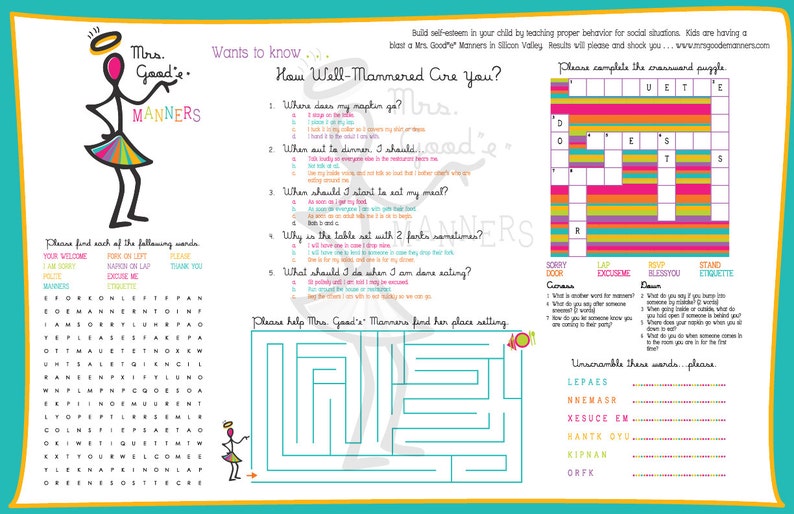 Mrs.
Good"e"
MANNERS
Wants to know . . .
How Well-Mannered Are You?
Build self-esteem in your child by teaching proper behavior for social situations. Kids are having a
blast a Mrs. Good"e" Manners in Silicon Valley. Results will please and shock you . . . www.mrsgoodemanners.com
1. Where does my napkin go?
a. It stays on the table.
b. I place it on my lap.
c. I tuck it in my collar so it covers my shirt or dress.
d. I hand it to the adult I am with.
2. When out to dinner, I should...
a. Talk loudly so everyone else in the restaurant hears me.
b. Not talk at all.
c. Use my inside voice, and not talk so loud that I bother other's who are
eating around me.
3. When should I start to eat my meal?
a. As soon as I get my food.
b. As soon as everyone I am with gets their food.
c. As soon as an adult tells me it is ok to begin.
d. Both b and c.
4. Why is the table set with 2 forks sometimes?
a. I will have one in case I drop mine.
b. I will have one to lend to someone in case they drop their fork.
c. One is for my salad, and one is for my dinner.
5. What should I do when I am done eating?
a. Sit politely until I am told I may be excused.
b. Run around the house or restaurant.
c. Beg the others I am with to eat quickly so we can go.
Mrs.
Good"e"
MANNERS
Please find each of the following words.
YOUR WELCOME FORK ON LEFT PLEASE
I AM SORRY NAPKIN ON LAP THANK YOU
POLITE EXCUSE ME
MANNERS ETIQUETTE
E F O R K O N L E F T F P A N
E O E M A N N E R N T O I N F
I A M S O R R Y L U H R P A O
Y E P L E A S E S F A K E P A
O T T M A U E T E T N O X K W
U H T S A L E T Q I K N C I L
R A N E E N P X I F Y L U N O
W N P L M P N P C Q O E S O A
E K P I I N O E M U U R E N T
L Y O P E P T L R R S E M L R
C O L N S F I E P S A E T A O
O K I W E T I Q U E T T M T W
K X T Y O U R W E L C O M E E
Y L E K N A P K I N O N L A P
O R E E N E S O S T T E C R E
Please help Mrs. Good"e" Manners find her place setting.
Please complete the crossword puzzle.
1 U E T 2 E
3
D
O 4 5 E S 6 T
T S
7 8
R
SORRY LAP RSVP STAND
DOOR EXCUSEME BLESSYOU ETIQUETTE
Across
1 What is another word for manners?
4 What do you say after someone
sneezes? (2 words)
7 How do you let someone know you
are coming to their party?
Down
2 What do you say if you bump into
someone by mistake? (2 words)
3 When going inside or outside, what do
you hold open if someone is behind you?
5 Where does your napkin go when you sit
down to eat?
6 What do you do when someone comes in
to the room you are in for the first
time?
Unscramble these words...please.
LEPAES
NNEMASR
XESUCE EM
HANTK OYU
KIPNAN
ORFK